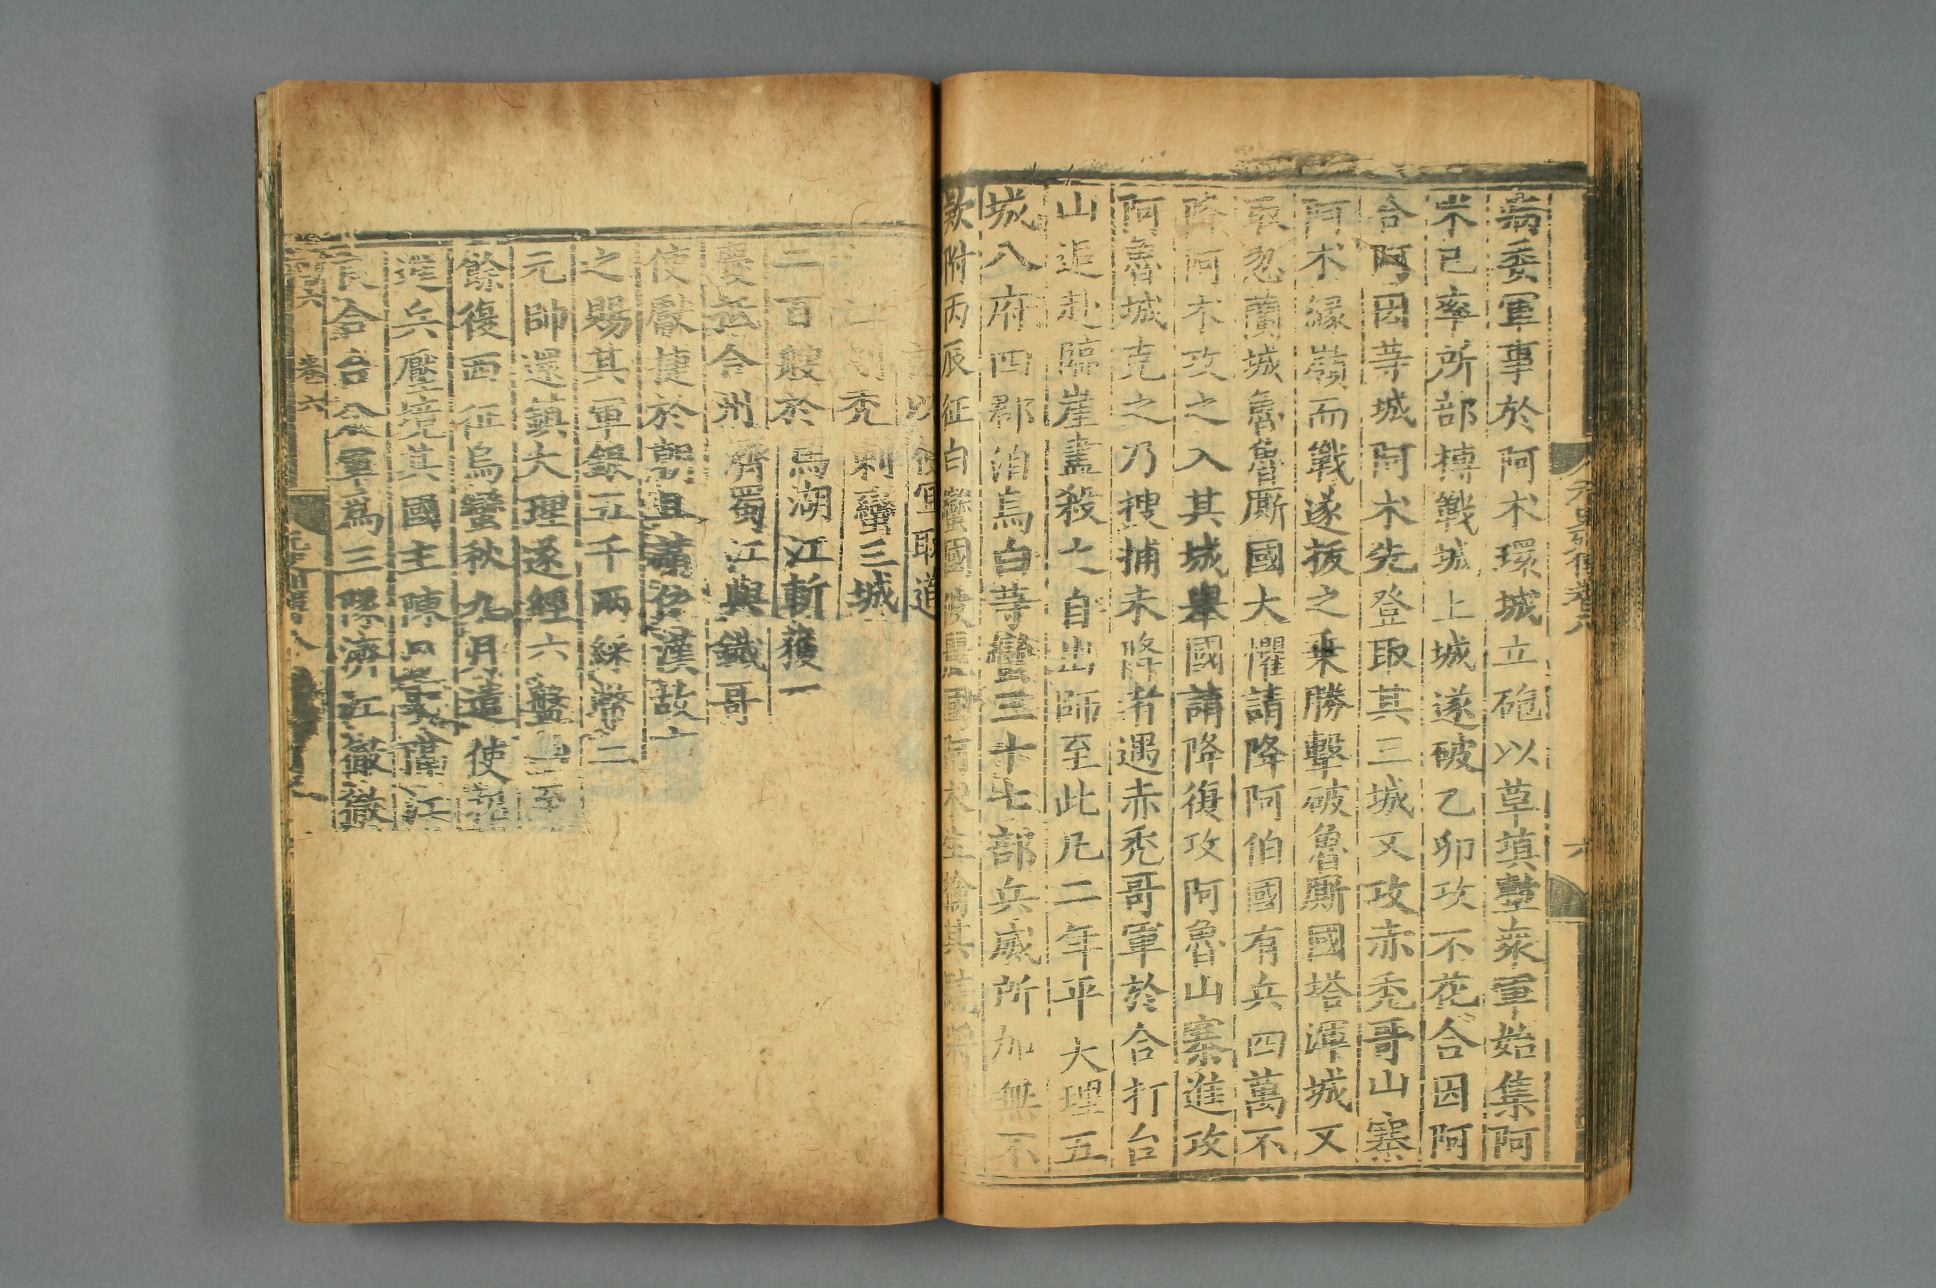 病委軍事於阿术環城立砲以草填塹衆軍始集阿
术已率所部搏戰城上城遂破乙卯攻不花合因阿
合阿因等城阿术先登取其三城又攻赤禿哥山寨
阿术緣嶺而戰遂拔之乗勝擊破魯厮國塔渾城又
取忽蘭城魯魯厮國大懼請降阿伯國有兵四萬不
降阿术攻之入其城舉國請降復攻阿魯山寨進攻
阿魯城克之乃搜捕未降者遇赤禿哥軍於合打台
山追赴臨崖盡殺之自出師至此凡二年平大理五
城八府四郡洎烏白等蠻三十七部兵威所加無不
欵附丙辰征白蠻國波麗國阿术生擒其
以便宜取道
禿剌蠻三城
二百艘於馬湖江斬獲一
慶抵合州濟蜀江與鐵哥
使獻捷於朝且請依漢故
之賜其軍銀五千兩綵幣二
元帥還鎮大理遂經六盤
餘復西征烏蠻秋九月遣使
選兵壓境其國主陳日煚
良合台分軍爲三隊濟江徹徹
六
卷六